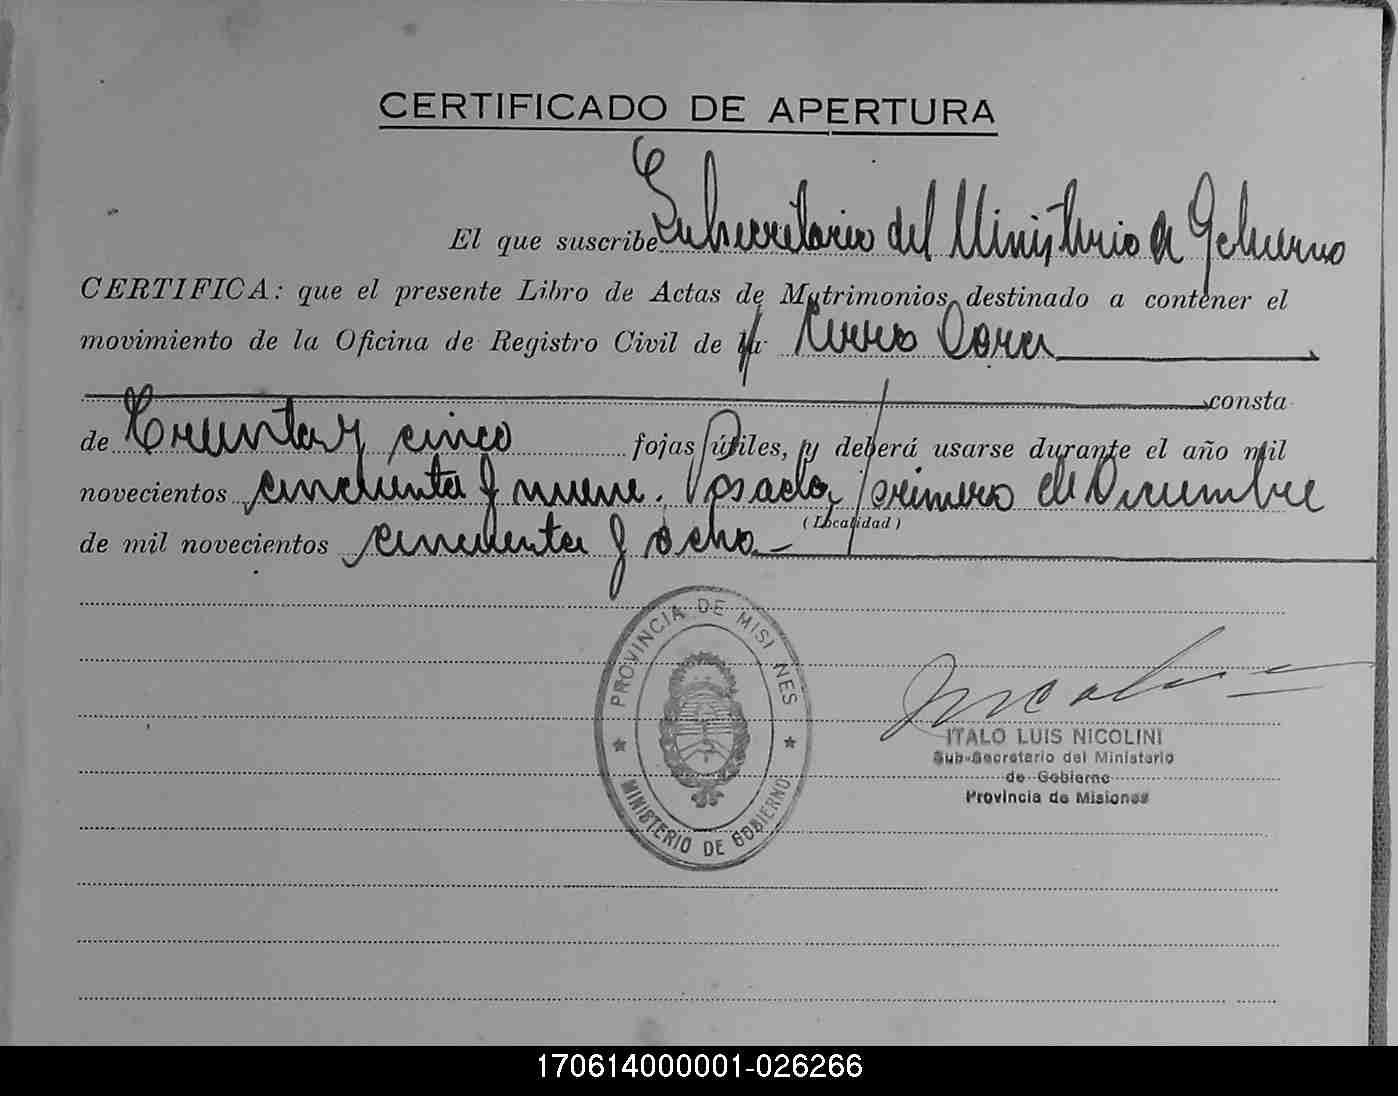 CERTIFICADO DE APERTURA
El que suscribe Subsecretario del Ministerio de Gobierno
CERTIFICA: que el presente Libro de Actas de Matrimonios destinado a contener el
movimiento de la Oficina de Registro Civil de la Cerro Cora
consta
de Treinta y cinco fojas útiles, y deberá usarse durante el año mil
novecientos cincuenta y nueve. Posadas, primero de Diciembre
(Localidad)
de mil novecientos cincuenta y ocho
PROVINCIA DE MISIONES
MINISTERIO DE GOBIERNO
ITALO LUIS NICOLINI
Sub-Secretario del Ministerio
de Gobierno
Provincia de Misiones
170614000001-026266